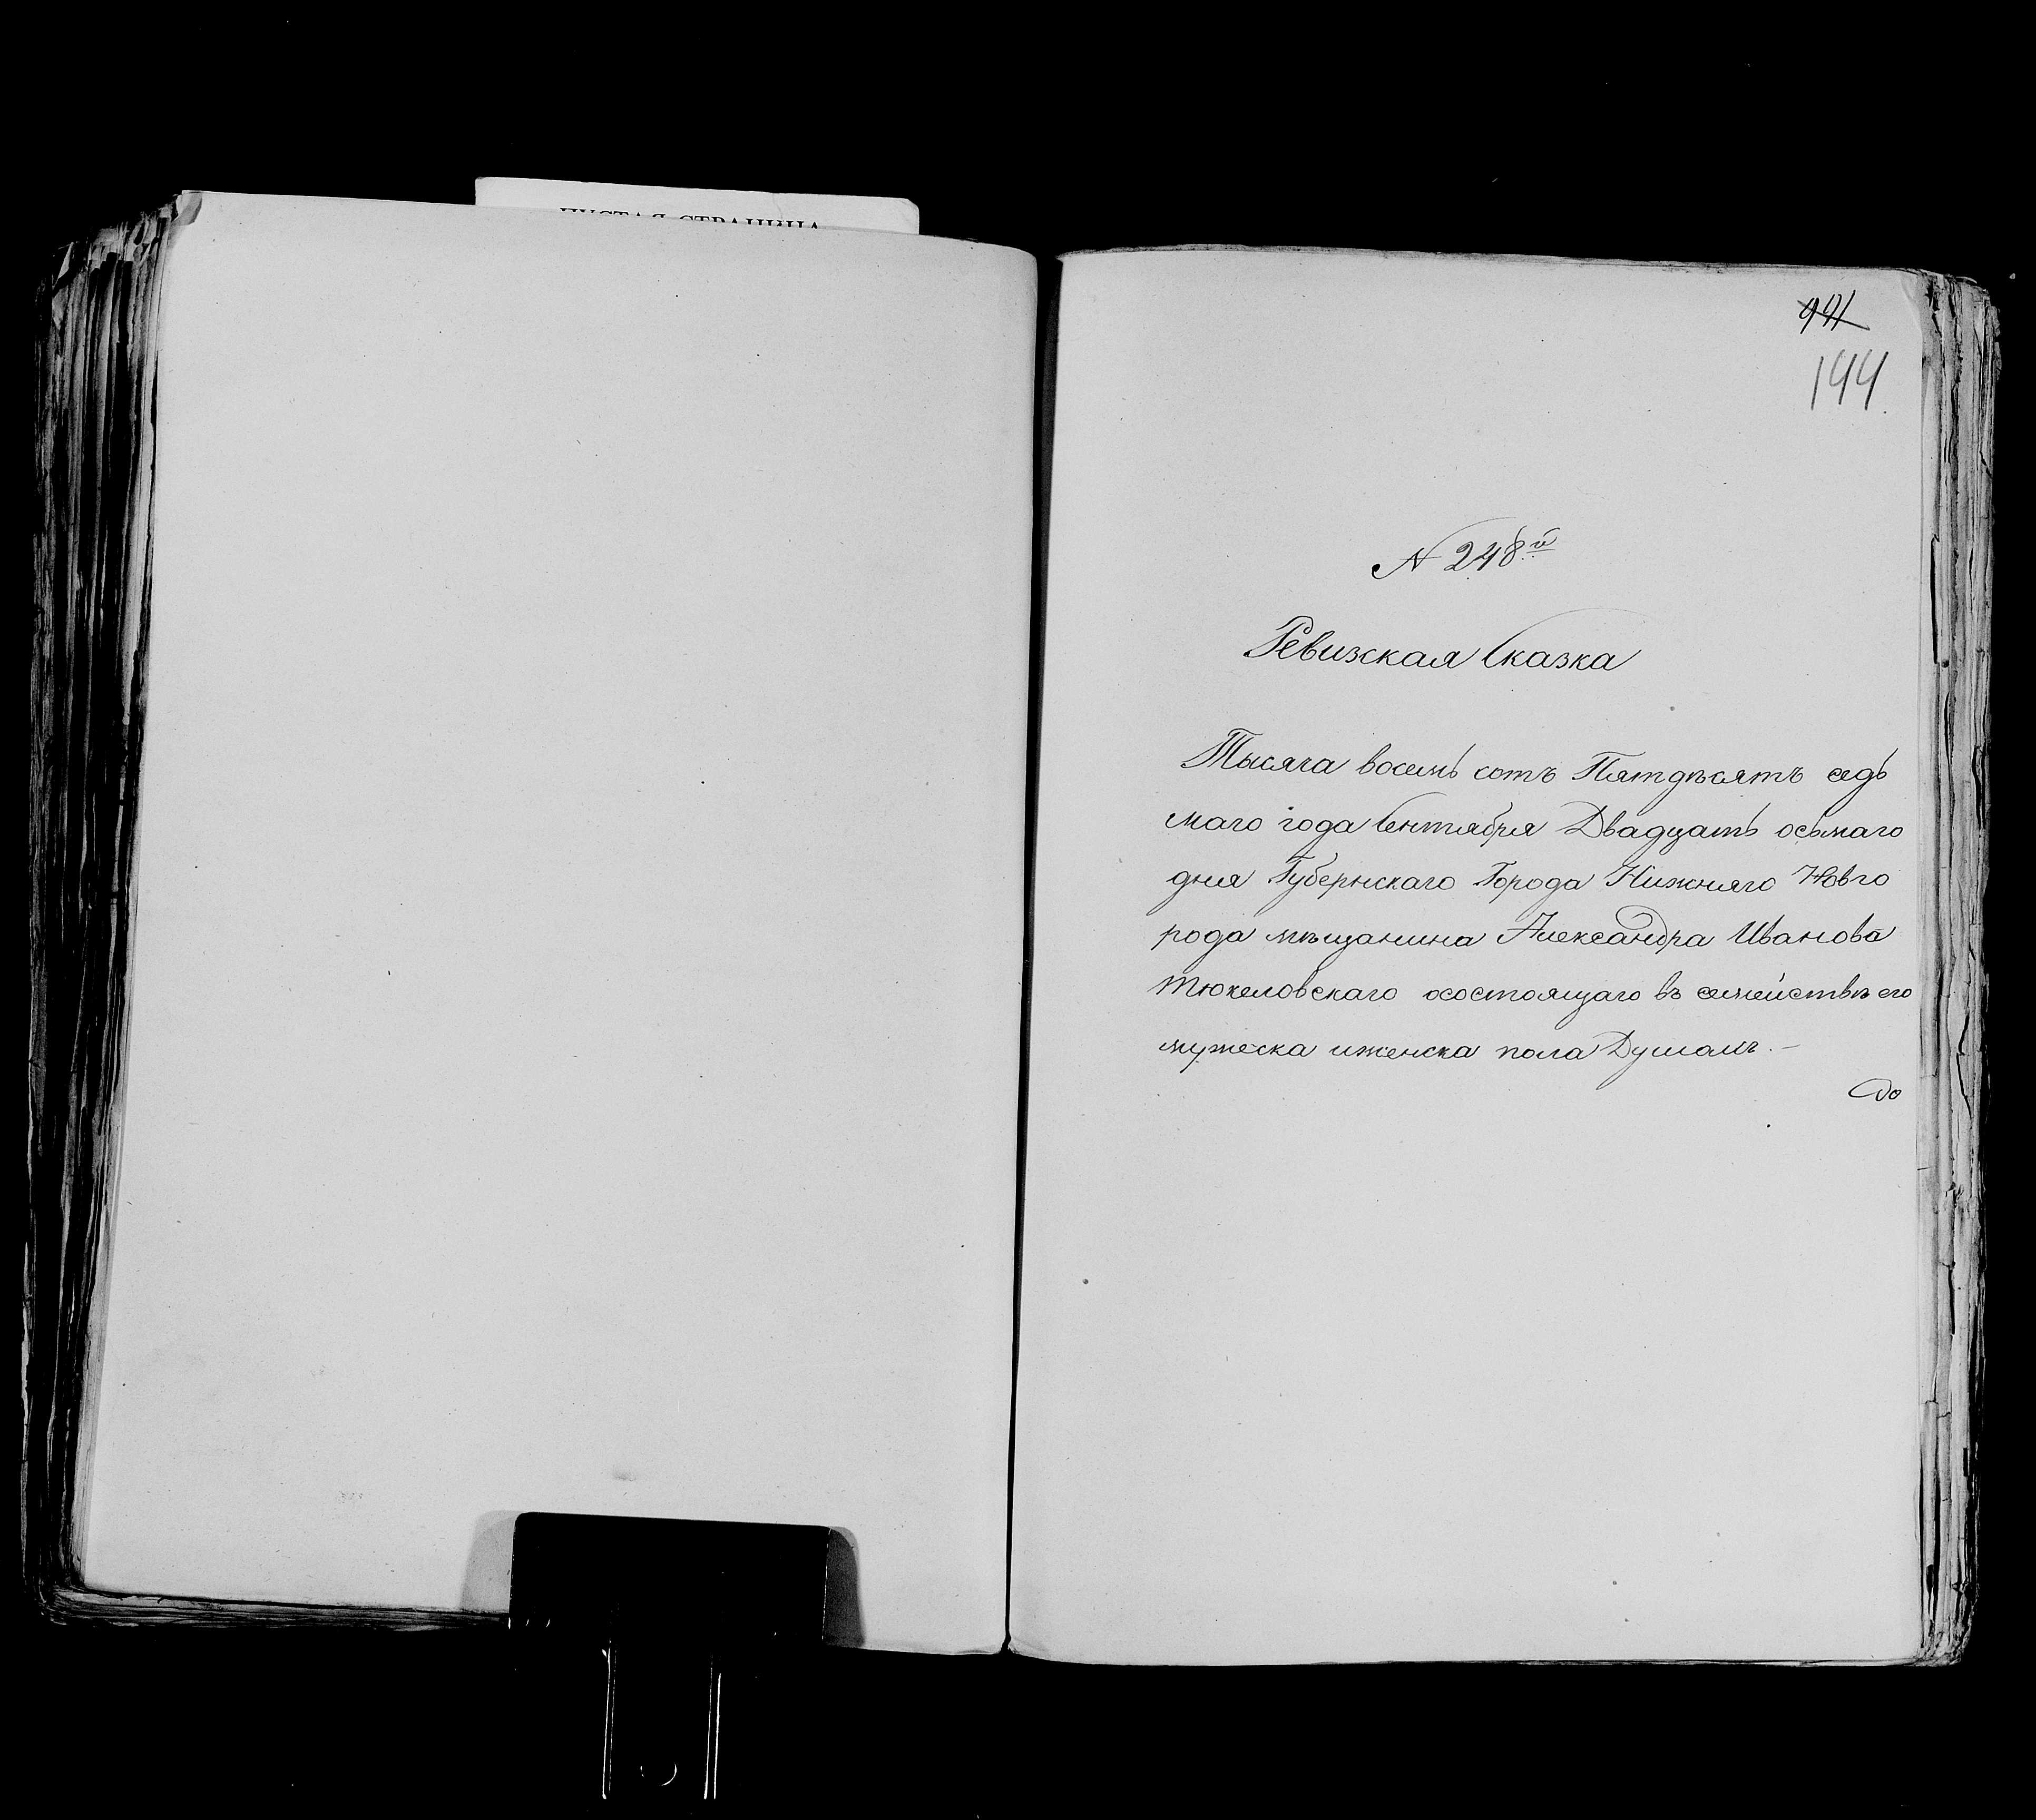 ПУСТАЯ СТРАНИЦА
991
144
N 248й
Ревизская Сказка
Тысяча восемь сотъ Пятдѣсятъ седь
маго года Сентября Двадцать осьмаго
дня Губернскаго Города Нижняго Новго
рода мѣщанина Александра Иванова
Тюкеловскаго осостоящаго въ семействѣ его
мужеска иженска пола Душамъ.-
До